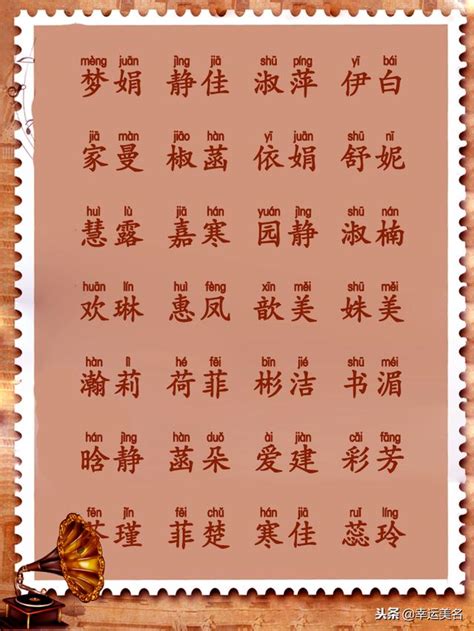 mèng juān jìng jiā shū píng yī bái
梦娟 静佳 淑萍 伊白
jiā màn jiāo hàn yī juān shū nī
家曼 椒菡 依娟 舒妮
huì lù jiā hán yuán jìng shū nán
慧露 嘉寒 园静 淑楠
huān lín huì fèng xīn měi shū měi
欢琳 惠凤 歆美 姝美
hàn lì hé fēi bīn jié shū méi
瀚莉 荷菲 彬洁 书湄
hán jìng hàn duǒ ài jiàn cǎi fāng
晗静 菡朵 爱建 彩芳
fēn jǐn fēi chǔ hán jiā ruǐ líng
芬瑾 菲楚 寒佳 蕊玲
头条 @幸运美名